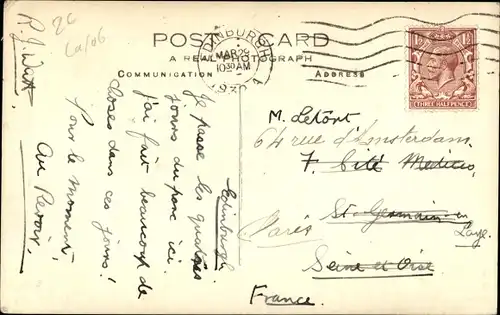 26
6a/06
POST CARD
A REAL PHOTOGRAPH
COMMUNICATION
ADDRESS
EDINBURGH
MAR 29
10 30 AM
THREE HALFPENCE
Edinburgh
Je passe les quatres
jours du parc ici.
j'ai fait beaucoup de
choses dans ces jours!
Pour le moment,
Au Revoir,
R. J. Watt
M. Letort
64 rue d'Amsterdam
7. Cité Médicis
Paris
St-Germain-en
Laye.
Seine et Oise
France.